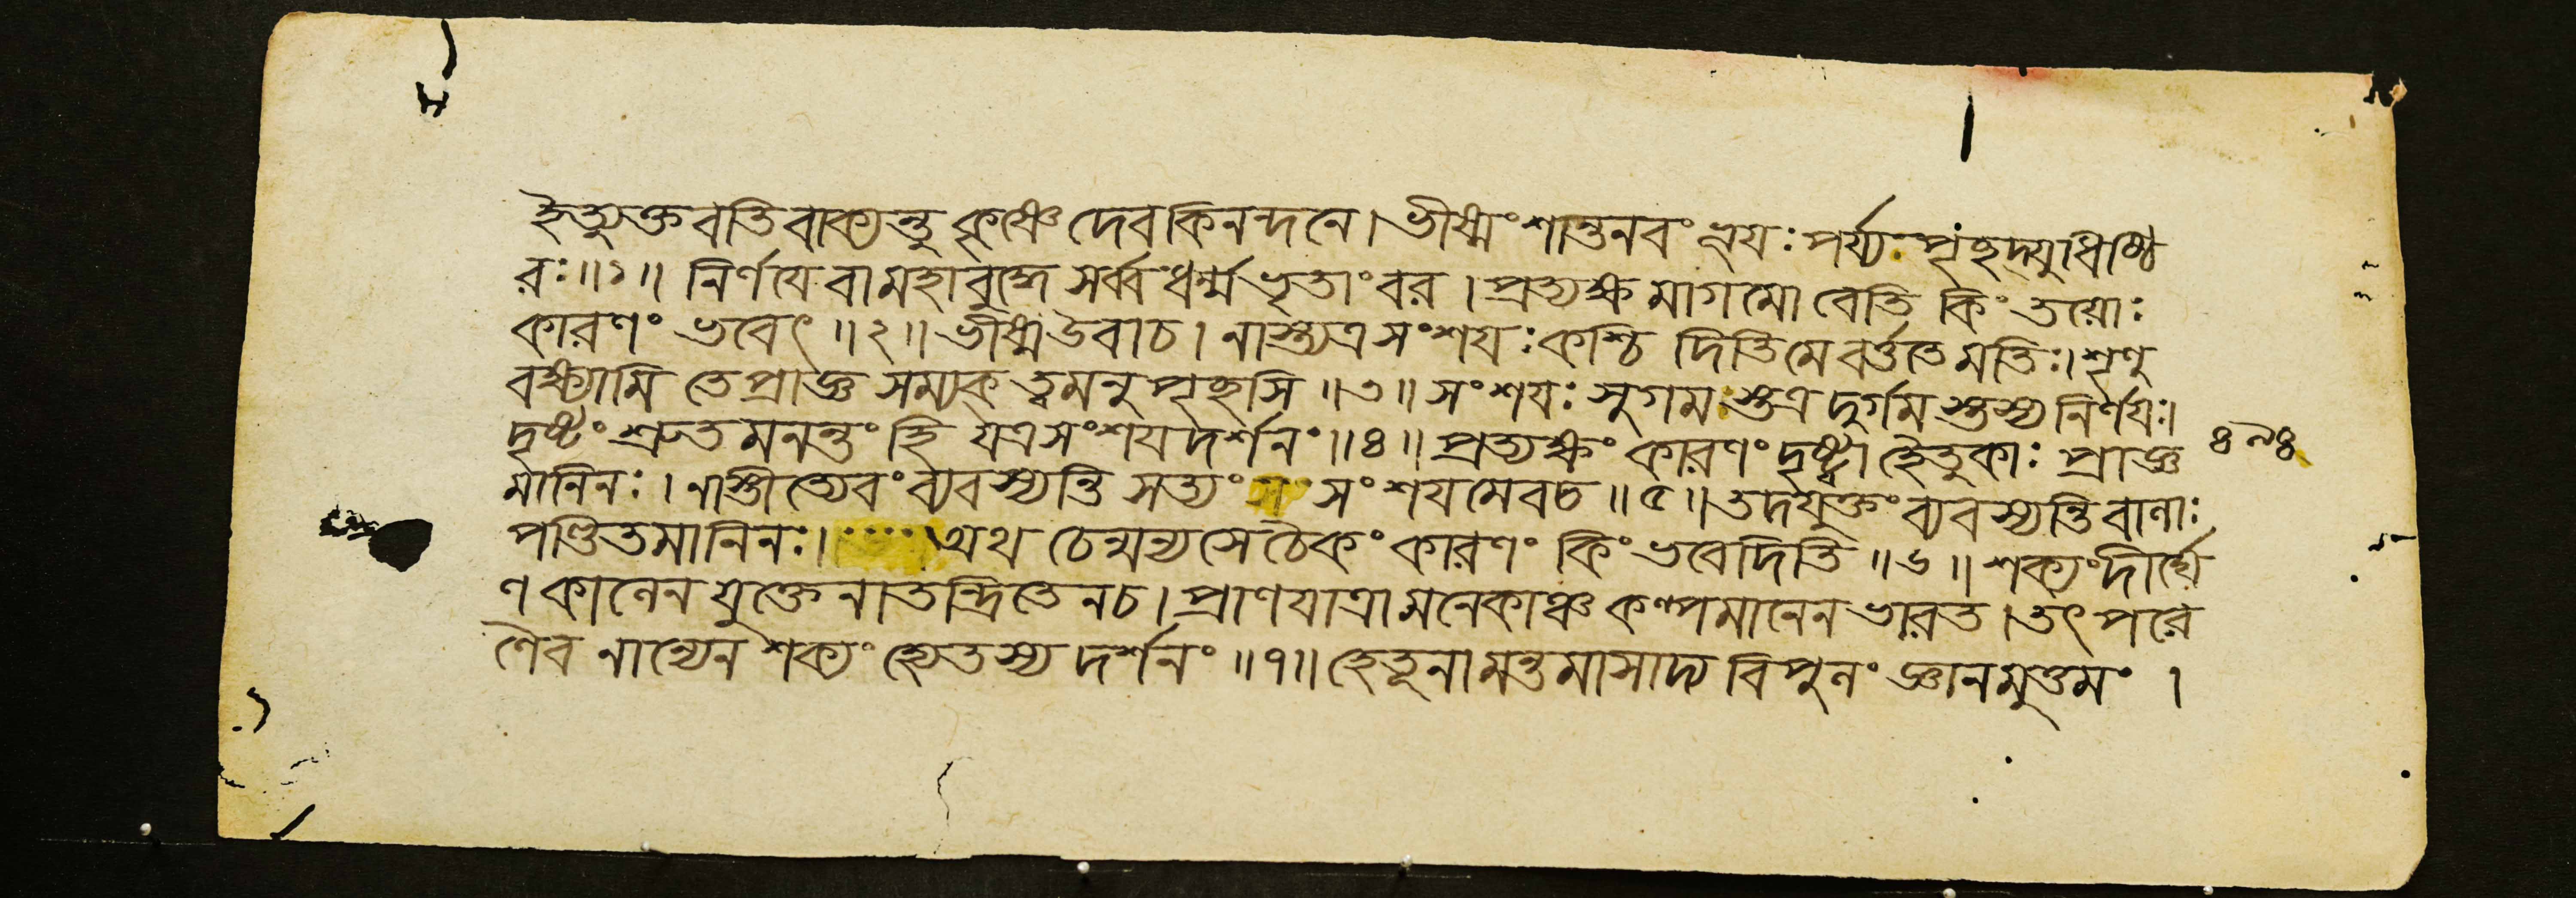 ইত্যুক্তবতি বাক্যন্তু কৃষ্ণে দেবকিনন্দনে। ভীষ্মং শান্তনবং ভূয়ঃ পর্য্যপৃচ্ছদ্যুধিষ্ঠি
রঃ॥১॥ নির্ণয়ে বা মহাবুদ্ধে সর্ব্বধর্ম্মভৃতাং বর। প্রত্যক্ষমাগমো বেতি কিং তয়োঃ
কারণং ভবেৎ॥২॥ ভীষ্ম উবাচ। নাস্ত্যত্র সংশয়ঃ কশ্চিদিতি মে বর্ত্ততে মতিঃ। শৃণু
বক্ষ্যামি তে প্রাজ্ঞ সম্যক্ ত্বমনুপৃচ্ছসি॥৩॥ সংশয়ঃ সুগমস্তত্র দুর্গমস্তস্য নির্ণয়ঃ।
দৃষ্টং শ্রুতমনন্তং হি যত্র সংশয়দর্শনং॥৪॥ প্রত্যক্ষং কারণং দৃষ্ট্বা হৈতুকাঃ প্রাজ্ঞ
মানিনঃ। নাস্তীত্যেবং ব্যবস্যন্তি সত্যং সংশয়মেব চ॥৫॥ তদযুক্তং ব্যবস্যন্তি বালাঃ
পণ্ডিতমানিনঃ। অথ চেন্মন্যসে চৈকং কারণং কিং ভবেদিতি॥৬॥ শক্যং দীর্ঘে
ণ কালেন যুক্তেনাতন্দ্রিতেন চ। প্রাণযাত্রামনেকাঞ্চ কল্পমানেন ভারত। তৎপরে
ণৈব নান্যেন শক্যং হ্যেতস্য দর্শনং॥৭॥ হেতূনামন্তমাসাদ্য বিপুলং জ্ঞানমুত্তমং।